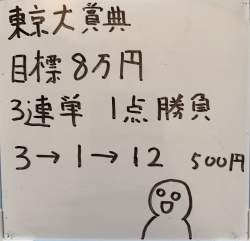 東京大賞典
目標8万円
3連単 1点勝負
3→1→12 500円